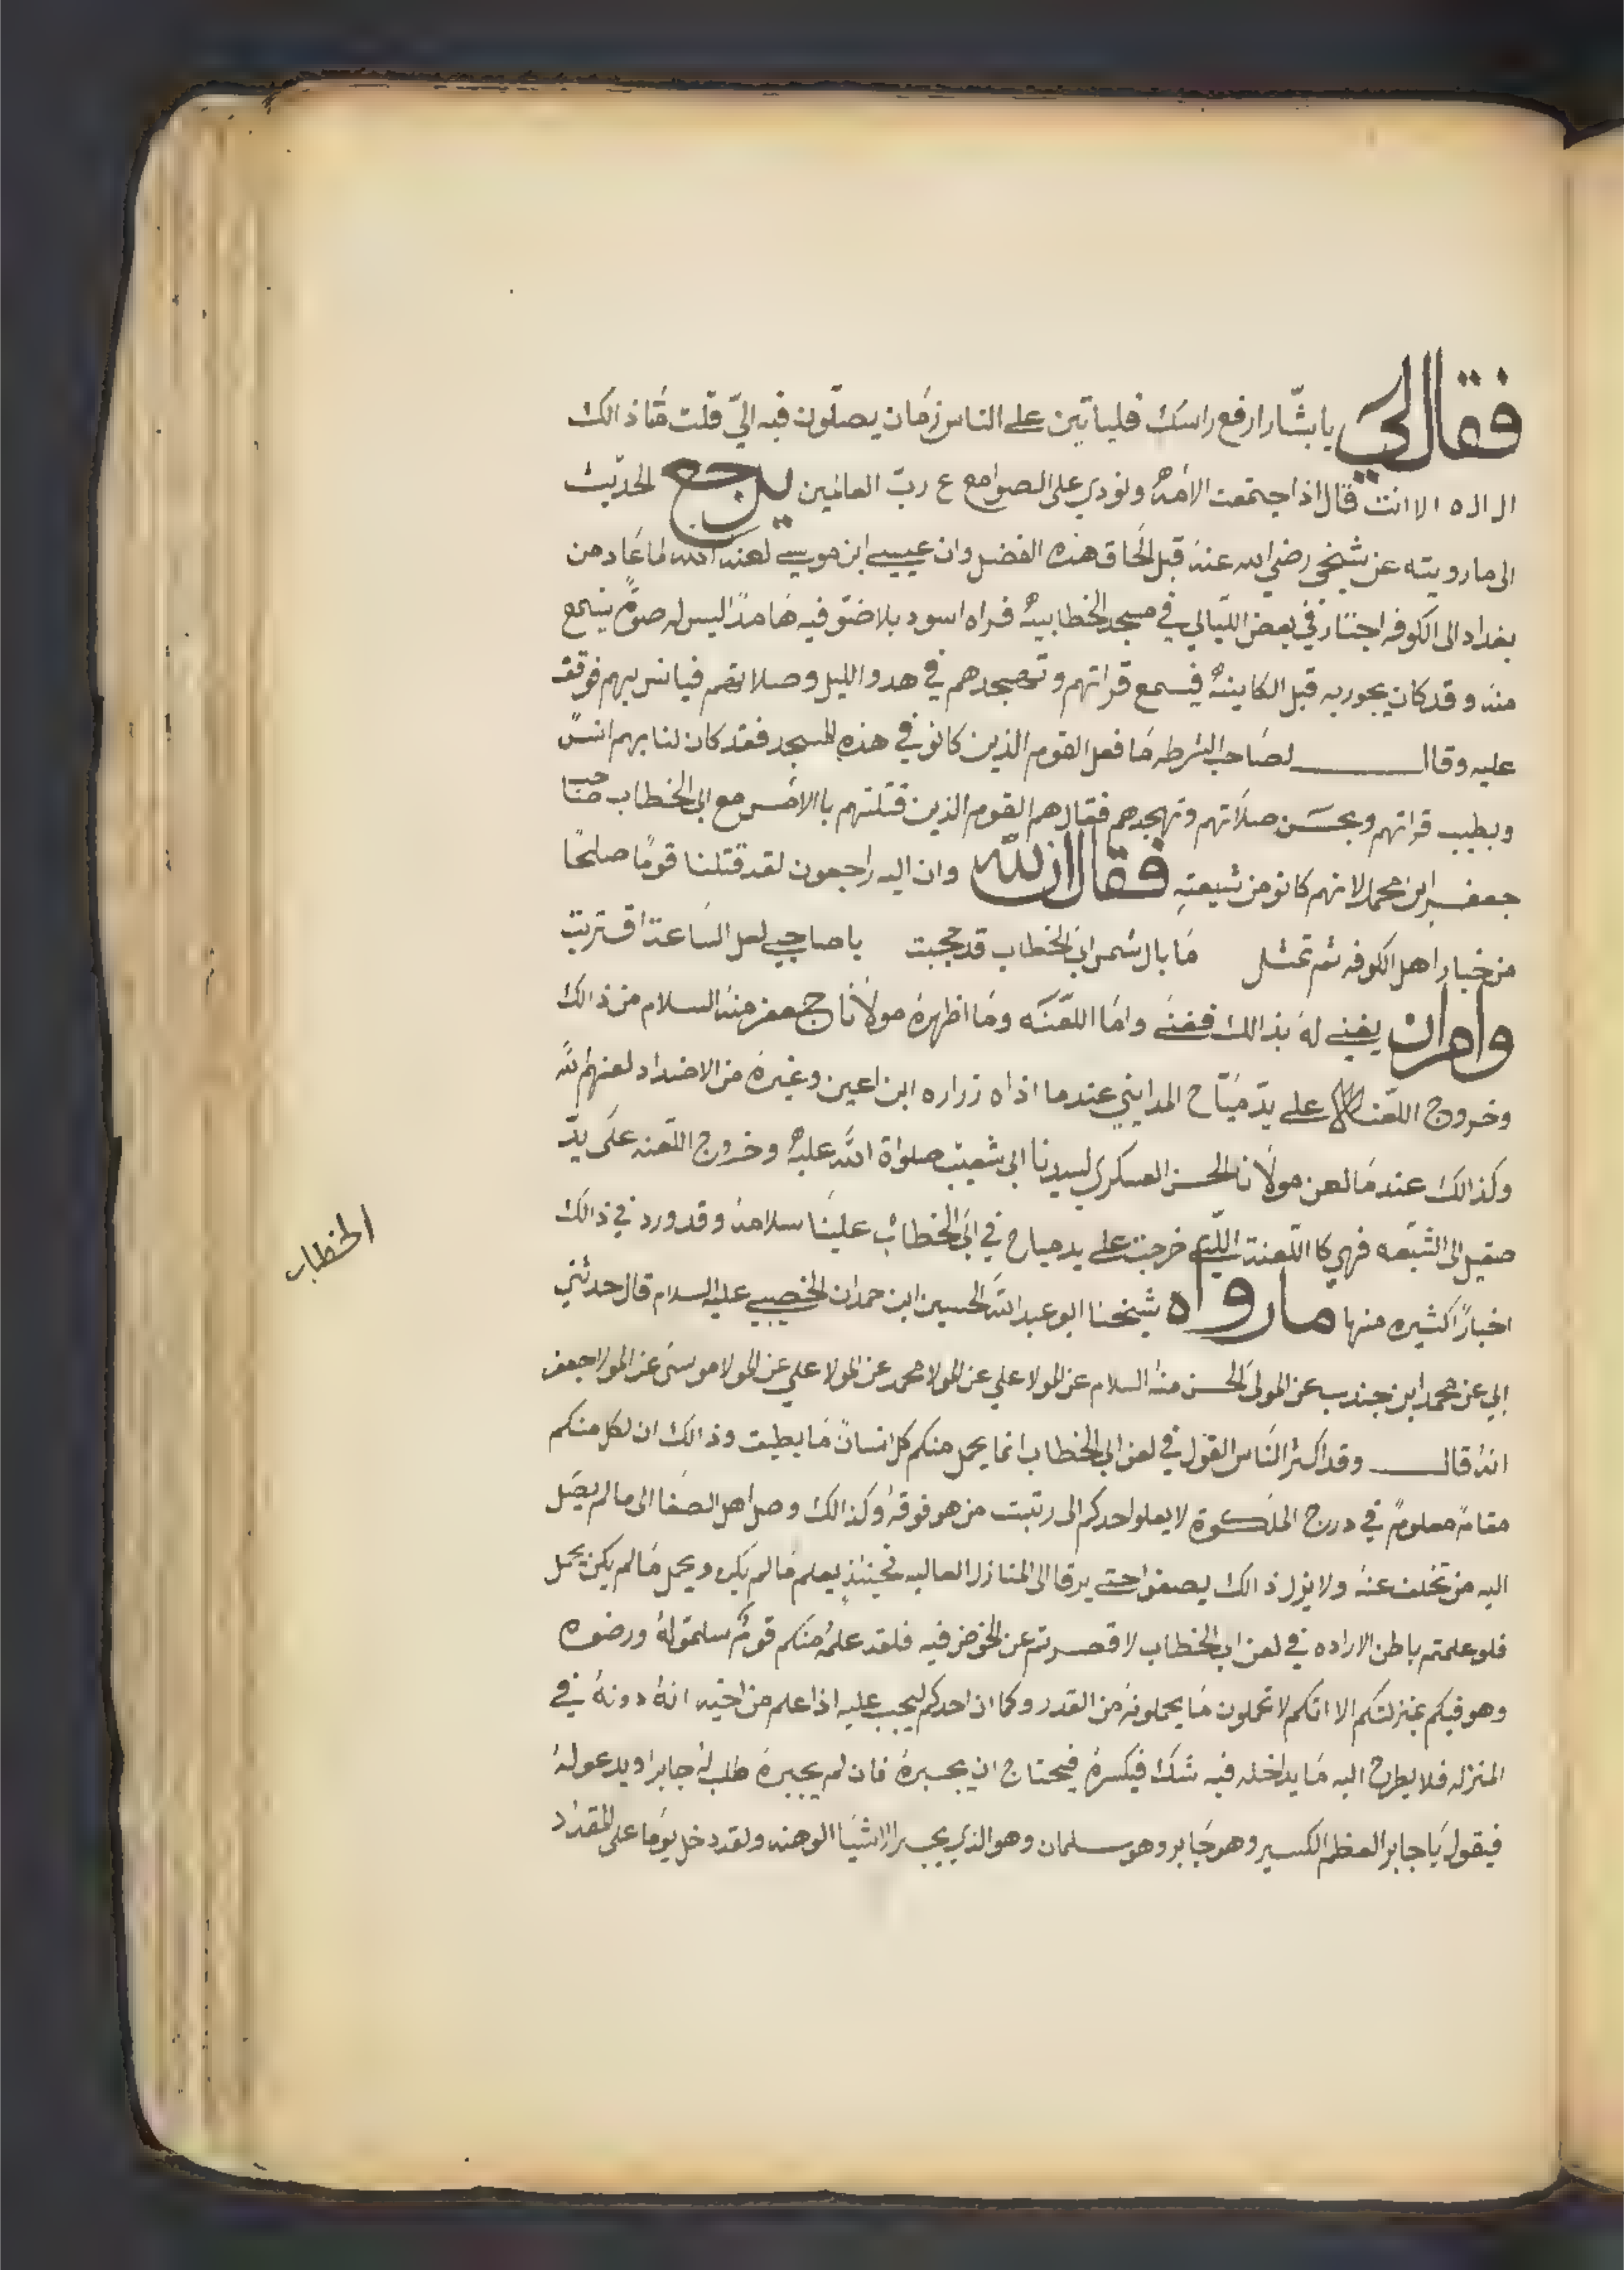 فقال لي يا بشّار ارفع راسك فلياتين على الناس زمان يصلّون فيه اليّ قلت متا ذالك
ال اله الا انت قال اذا اجتمعت الامه ونودي على الصوامع ع ربّ العالمين يرجع الحديث
الى ما رويته عن شيخي رضي الله عنه قبل الحاق هذه الفضل وان عيسى ابن موسى لعنه الله لما عاد من
بغداد الى الكوفه اجتاز في بعض الليالي في مسجد الخطابيه فراه اسود بلا ضوّ فيه هامدًا ليس له صوةً يسمع
منه وقد كان يجوز به قبل الكاينه فيسمع قراتهم وتهجدهم في هدو الليل وصلاتهم فيانس بهم فوقف
عليه وقال لصاحب الشرطه ما فعل القوم الذين كانو في هذه المسجد فقد كان لنا بهم انسً
وبطيب قراتهم وبحسن صلاتهم وتهجدهم فقال هم القوم الذين قتلتهم باالامس مع ابى الخطاب صاحب
جعفر ابن محمد لانهم كانو من شيعته فقال ان لله وان اليه راجعون لقد قتلنا قومًا صلحًا
من خيار اهل الكوفه ثم تمثل ما بال شمس ابي الخطاب قد حجبت يا صاحبي لعل الساعة اقتربت
وامران يغني له بذالك فغنى واما اللعنه وما اظهره مولانا جعفر منه السلام من ذالك
وخروج اللعنه على يدّ ميّاح المدايني عندما اذاه زراره ابن اعين وغيره من الاضداد لعنهم الله
وكذالك عندما لعن مولانا الحسن العسكري لسيدنا ابي شعيب صلواة الله عليه وخروج اللعنه على يدّ
صقيل الى الشيعه فهي كا اللعنة اللتي خرجت على يد مياح في ابي الخطاب علينا سلامه وقد ورد في ذالك
اخبارًا كثيره منها ما رواه شيخنا ابو عبد الله الحسين ابن حمدان الخصيبي عليه السلام قال حدثني
ابي عن محمد ابن جندب عن المولى الحسن منه السلام عن المولا علي عن المولا محمد عن المولا علي عن المولا موسى عن المولا جعفر
انه قال وقد اكثر الناس القول في لعن ابي الخطاب انما يحمل منكم كل انسان ما يطيق وذالك ان لكل منكم
مقامً معلومً في درج الملكوة لا يعلو احدكم الى رتبت من هو فوقه وكذالك وصل اهل الصفا الى ما لم يصل
اليه من تخلف عنه ولا يزل ذالك يصفوا حتى يرقا الى المنازل العاليه فحينئذٍ يعلم ما لم يكن ويحمل ما لم يكن يحمل
فلو علمتم باطن الاراده في لعن ابي الخطاب لاقصرتم عن الخوض فيه فلقد علمه منكم قومً سلموا له ورضوه
وهو فيكم بمنزلتكم الا انكم لا تحملون ما يحملونه من القدر وكما ان احدكم ليجب عليه اذا علم من اخيه انه دونه في
المنزله فلا يطرح اليه ما يداخله فيه شك فيكسره فيحتاج ان يجبره فان لم يجبره طلب له جابر او يدعو له
فيقول يا جابر العظم الكسير وهو جابر وهو سلمان وهو الذي يجبر الاشيا الوهنه ولقد دخل يومًا على المقداد
الخطاب